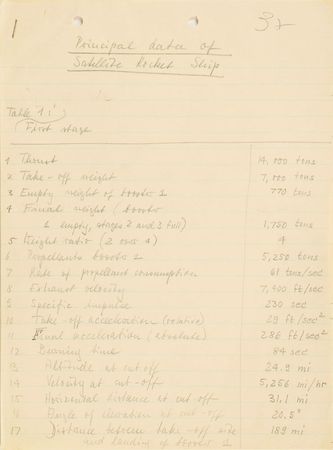 1
Principal data of
Satellite Rocket Ship
Table 1:
(First stage
1 Thrust 14,000 tons
2 Take-off weight 7,000 tons
3 Empty weight of booster 1 770 tons
4 Final weight (booster
1 empty, stages 2 and 3 full) 1,750 tons
5 Weight ratio (2 over 4) 4
6 Propellants booster 1 5,250 tons
7 Rate of propellant consumption 61 tons/sec
8 Exhaust velocity 7,400 ft/sec
9 Specific impulse 230 sec
10 Take-off acceleration (relative) 29 ft/sec²
11 Final acceleration (absolute) 286 ft/sec²
12 Burning time 84 sec
13 Altitude at cut-off 24.9 mi
14 Velocity at cut-off 5,256 mi/hr
15 Horizontal distance at cut off 31.1 mi
16 Angle of elevation at cut-off 20.5°
17 Distance between take-off site 189 mi
and landing of booster 1